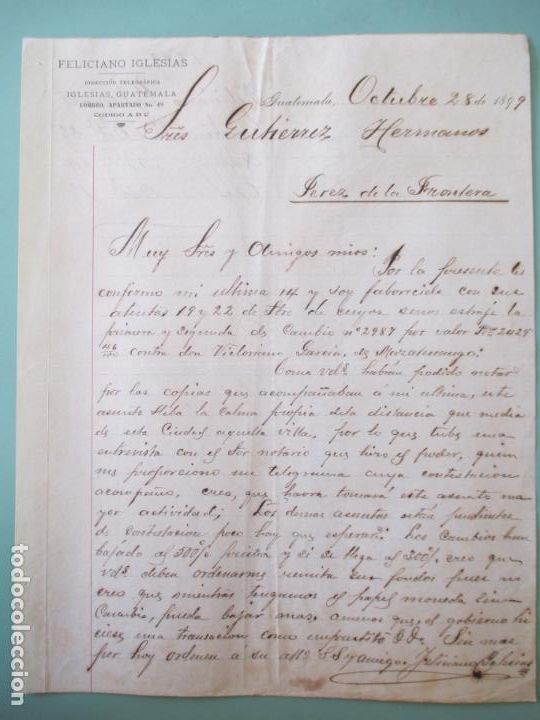 FELICIANO IGLESIAS
DIRECCIÓN TELEGRÁFICA
IGLESIAS, GUATEMALA
CORREO, APARTADO No. 49
CODIGO A B C
Guatemala, Octubre 28 de 1899
Sres Gutierrez Hermanos
Jerez de la Frontera
Muy Sres y Amigos mios:
Por la presente les
confirmo mi ultima 14 y soy faborecido con sus
atentas 19 y 22 de de cuyos senos estraje la
primera y segunda de Cambio nº 2987 por valor
contra don Victorino Garcia, de Mazatenango.
Como vds habran podido notar
por las copias que acompañaban á mi ultima, este
asunto lleba la calma propia de la distancia que media
de esta Ciudad aquella villa, por lo que tube una
entrevista con el Sor notario que hizo el poder, quien
me proporciono un telegrama cuya contestacion
acompaño, creo, que havra tomara este asunto ma
yor actividad; Los demas asuntos estan pendientes
de contestacion poco hay que esperar. Los Cambios han
bajado al 200% y si se llega al 200% creo que
vds deben ordenarme remita sus fondos pues no
creo que mientras tengamos el papel moneda sin
Cambio, pueda bajar mas, amenos que, el gobierno hi
ciese una transacion como emprestito &&. Sin mas
por hoy ordenen a su atto S.S. y amigo. Feliciano Iglesias
todocoleccion